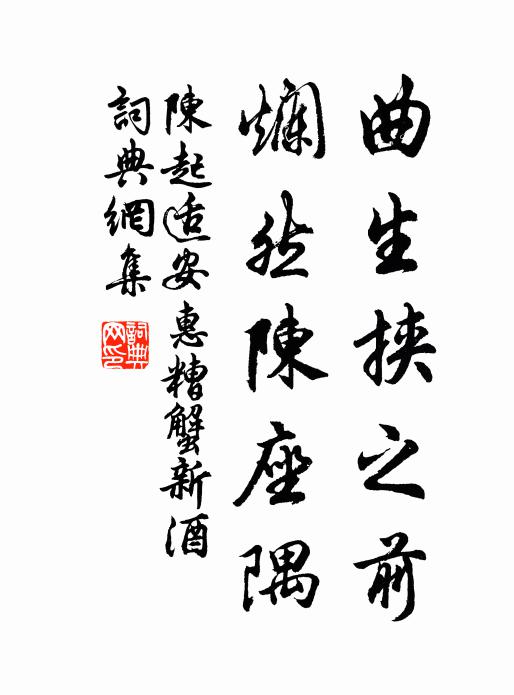 曲生挾之前
爛然陳座隅
陳起适安惠糟蟹新酒
詞典網集
詞典
网印